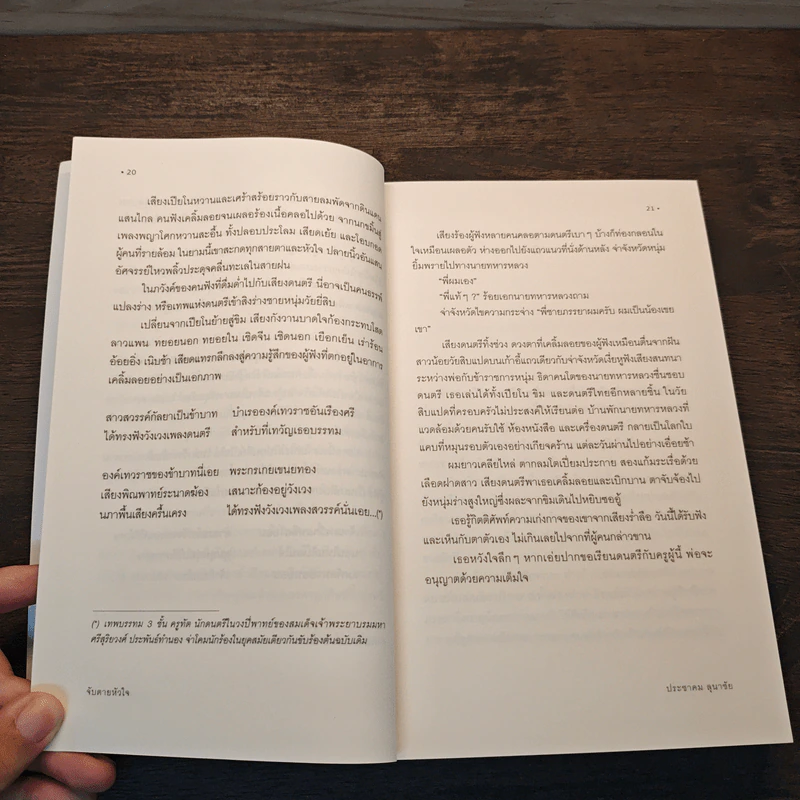 • 20
เสียงเปียโนหวานและเศร้าสร้อยราวกับสายลมพัดจากดินแดน
แสนไกล คนฟังเคลิ้มลอยจนเผลอร้องเนื้อคลอไปด้วย จากนกขมิ้นสู่
เพลงพญาโศกหวานสะอื้น ทั้งปลอบประโลม เสียดเย้ย และโอบกอด
ผู้คนที่รายล้อม ในยามนี้เขาสะกดทุกสายตาและหัวใจ ปลายนิ้วอันแสน
อัศจรรย์ไหวพลิ้วประดุจคลื่นทะเลในสายฝน
ในภวังค์ของคนฟังที่ดื่มด่ำไปกับเสียงดนตรี นี่อาจเป็นคนธรรพ์
แปลงร่าง หรือเทพแห่งดนตรีเข้าสิงร่างชายหนุ่มวัยยี่สิบ
เปลี่ยนจากเปียโนย้ายสู่ขิม เสียงกังวานบาดใจก้องกระทบโสต
ลาวแพน ทยอยนอก ทยอยใน เชิดจีน เชิดนอก เยือกเย็น เร่าร้อน
อ้อยอิ่ง เนิบช้า เสียดแทรกลึกลงสู่ความรู้สึกของผู้ฟังที่ตกอยู่ในอาการ
เคลิ้มลอยอย่างเป็นเอกภาพ
สาวสวรรค์กัลยาเป็นข้าบาท บำเรอองค์เทวราชอันเรืองศรี
ได้ทรงฟังวังเวงเพลงดนตรี สำหรับที่เทวัญเธอบรรทม
องค์เทวราชของข้าบาทนี่เอย พระกรเกยเขนยทอง
เสียงพิณพาทย์ระนาดฆ้อง เสนาะก้องอยู่วังเวง
นภาพื้นเสียงครื้นเครง ได้ทรงฟังวังเวงเพลงสวรรค์นั่นเอย...(*)
(*) เทพบรรทม 3 ชั้น ครูทัด นักดนตรีในวงปี่พาทย์ของสมเด็จเจ้าพระยาบรมมหา
ศรีสุริยวงศ์ ประพันธ์ทำนอง จ่าโคมนักร้องในยุคสมัยเดียวกันขับร้องต้นฉบับเดิม
จับตายหัวใจ
21 •
เสียงร้องผู้ฟังหลายคนคลอตามดนตรีเบาๆ บ้างก็ท่องกลอนใน
ใจเหมือนเผลอตัว ห่างออกไปยังแถวแนวที่นั่งด้านหลัง จ่าจังหวัดหนุ่ม
ยิ้มพรายไปทางนายทหารหลวง
“พี่ผมเอง”
“พี่แท้ๆ ?” ร้อยเอกนายทหารหลวงถาม
จ่าจังหวัดไขความกระจ่าง “พี่ชายภรรยาผมครับ ผมเป็นน้องเขย
เขา”
เสียงดนตรีทิ้งช่วง ดวงตาที่เคลิ้มลอยของผู้ฟังเหมือนตื่นจากฝัน
สาวน้อยวัยสิบแปดบนเก้าอี้แถวเดียวกับจ่าจังหวัดเงี่ยหูฟังเสียงสนทนา
ระหว่างพ่อกับข้าราชการหนุ่ม ธิดาคนโตของนายทหารหลวงชื่นชอบ
ดนตรี เธอเล่นได้ทั้งเปียโน ขิม และดนตรีไทยอีกหลายชิ้น ในวัย
สิบแปดที่ครอบครัวไม่ประสงค์ให้เรียนต่อ บ้านพักนายทหารหลวงที่
แวดล้อมด้วยคนรับใช้ ห้องหนังสือ และเครื่องดนตรี กลายเป็นโลกใบ
แคบที่หมุนรอบตัวเองอย่างเกียจคร้าน แต่ละวันผ่านไปอย่างเอื่อยช้า
ผมยาวเคลียไหล่ ตากลมโตเปี่ยมประกาย สองแก้มระเรื่อด้วย
เลือดฝาดสาว เสียงดนตรีพาเธอเคลิ้มลอยและเบิกบาน ตาจับจ้องไป
ยังหนุ่มร่างสูงใหญ่ซึ่งผละจากขิมเดินไปหยิบซออู้
เธอรู้กิตติศัพท์ความเก่งกาจของเขาจากเสียงร่ำลือ วันนี้ได้รับฟัง
และเห็นกับตาตัวเอง ไม่เกินเลยไปจากที่ผู้คนกล่าวขาน
เธอหวังใจลึกๆ หากเอ่ยปากขอเรียนดนตรีกับครูผู้นี้ พ่อจะ
อนุญาตด้วยความเต็มใจ
ประชาคม ลุนาชัย